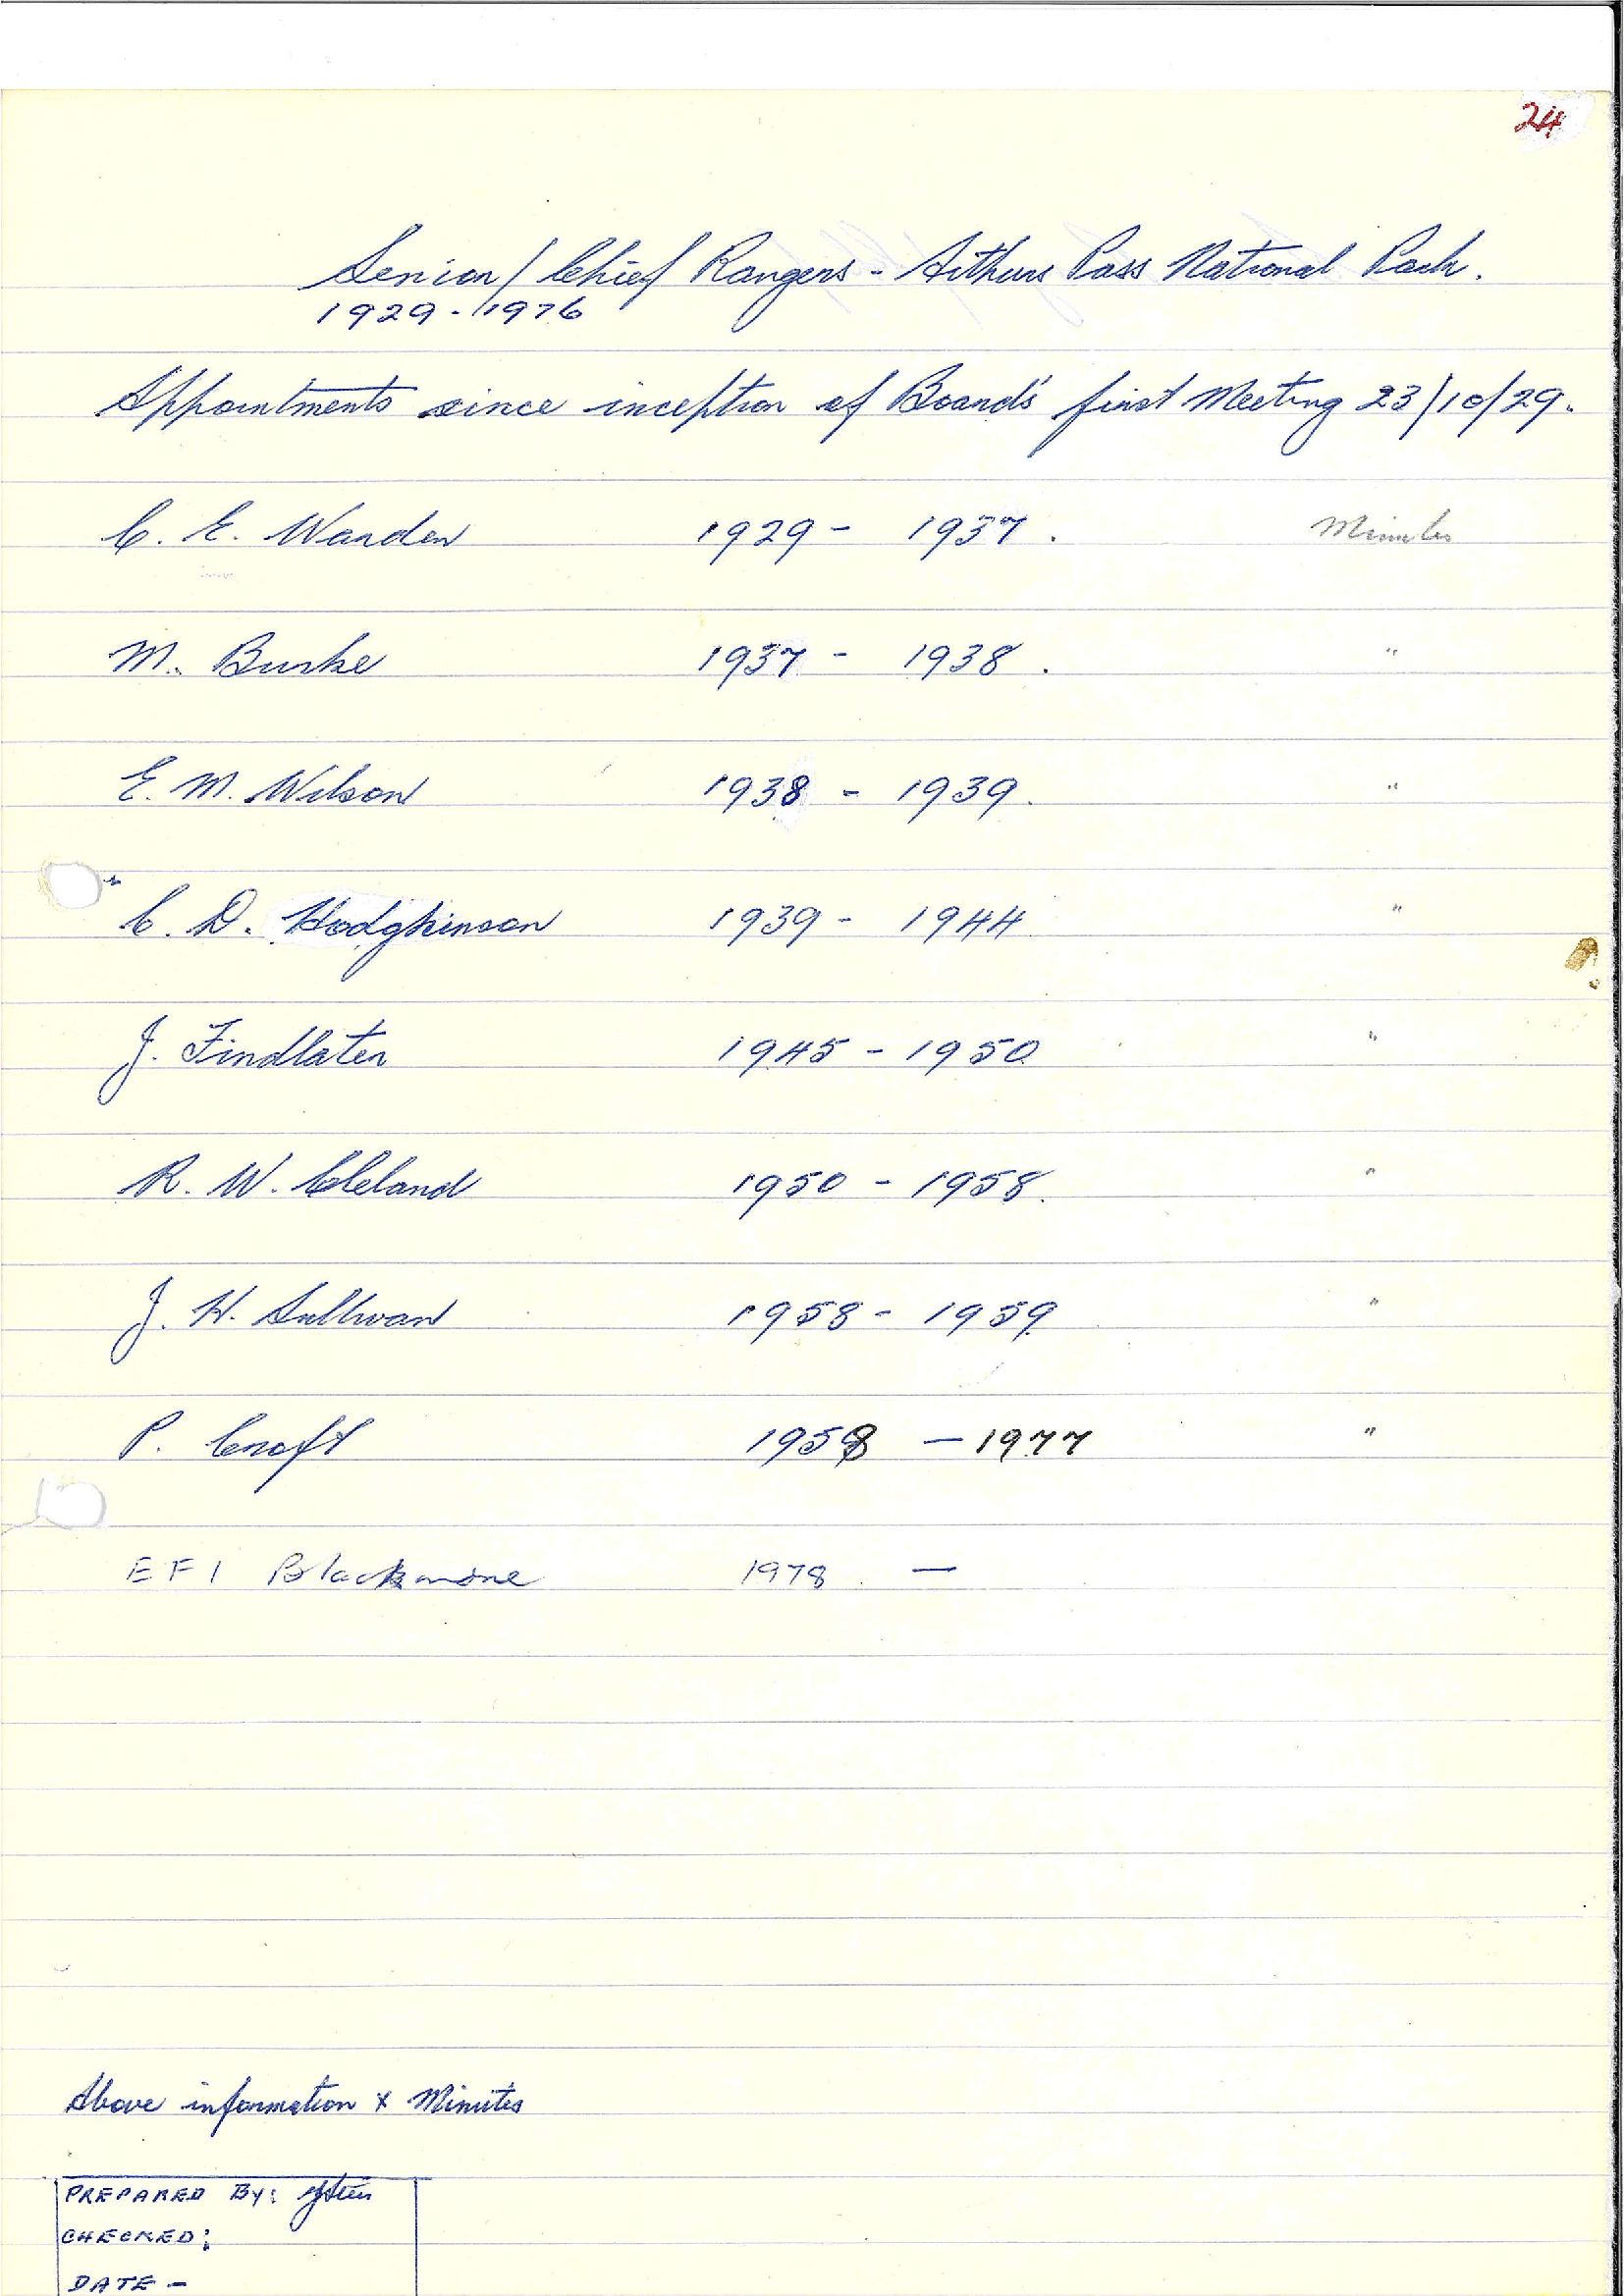 24
Senior / Chief Rangers - Arthurs Pass National Park.
1929 - 1976
Appointments since inception of Board's first Meeting 23/10/29.
C. E. Warden 1929 - 1937. Minutes
M. Burke 1937 - 1938. "
E. M. Wilson 1938 - 1939. "
C. D. Hodgkinson 1939 - 1944 "
J. Findlater 1945 - 1950 "
R. W. Cleland 1950 - 1958. "
J. H. Sullivan 1958 - 1959 "
P. Croft 1958 - 1977 "
E F I Blackmore 1978 -
Above information x Minutes
PREPARED BY:
CHECKED:
DATE -